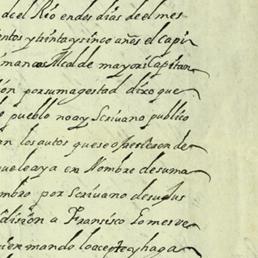 del Rio en des dias de el mes
entos y trinta y sinco años el Capi
Alcalde mayor i Capitan
ion por su magestad dixo que
o pueblo no ay Scrivano publico
an los autos que se ofresieren de
que le aya en Nombre de su ma
mbro por Scrivano de sus
dision a Fransisco Gomes ve
ien mando lo acepte y haga